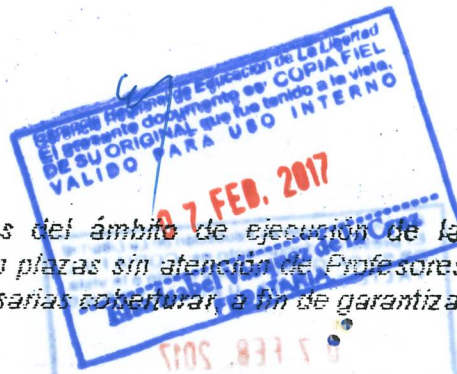 Gerencia Regional de Educación de La Libertad
El presente documento es: COPIA FIEL
DE SU ORIGINAL que fue tenido a la vista.
VALIDO PARA USO INTERNO
0 7 FEB. 2017
s del ámbito de ejecución de la
plazas sin atención de Profesores
sarias coberturar, a fin de garantiza